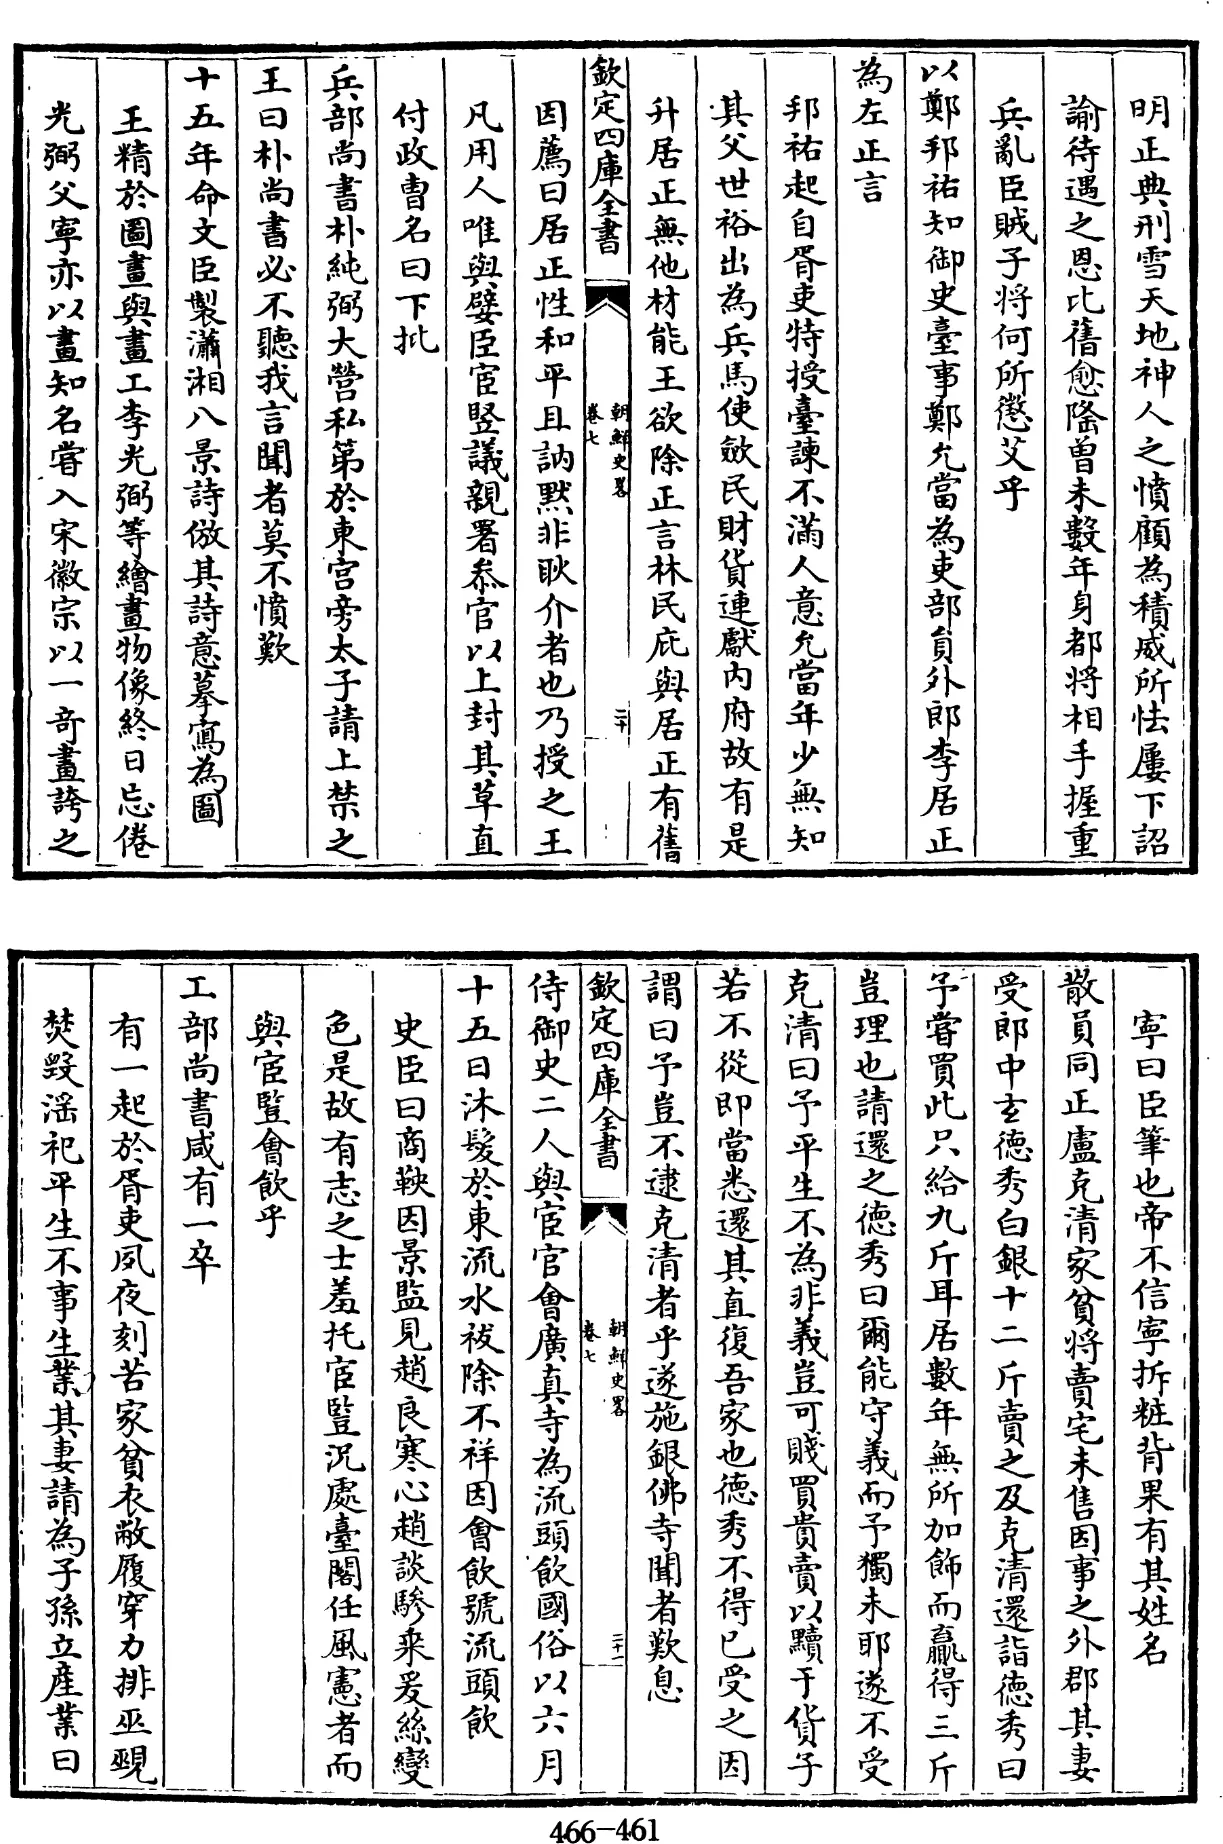 明正典刑雪天地神人之憤顧為積威所怯屢下詔
諭待遇之恩比舊愈隆曾未數年身都將相手握重
兵亂臣賊子將何所懲艾乎
以鄭邦祐知御史臺事鄭允當為吏部員外郎李居正
為左正言
邦祐起自胥吏特授臺諫不滿人意允當年少無知
其父世裕出為兵馬使斂民財貨連獻内府故有是
升居正無他材能王欲除正言林民庇與居正有舊
欽定四庫全書
朝鮮史畧
卷七
二十
因薦曰居正性和平且訥默非耿介者也乃授之王
凡用人唯與嬖臣宦豎議親署叅官以上封其草直
付政曹名曰下批
兵部尚書朴純弼大營私第於東宫旁太子請上禁之
王曰朴尚書必不聽我言聞者莫不憤歎
十五年命文臣製瀟湘八景詩倣其詩意摹寫為圖
王精於圖畫與畫工李光弼等繪畫物像終日忘倦
光弼父寧亦以畫知名嘗入宋徽宗以一奇畫誇之
寧曰臣筆也帝不信寧拆粧背果有其姓名
散員同正盧克清家貧將賣宅未售因事之外郡其妻
受郎中玄德秀白銀十二斤賣之及克清還詣德秀曰
予嘗買此只給九斤耳居數年無所加飾而贏得三斤
豈理也請還之德秀曰爾能守義而予獨未耶遂不受
克清曰予平生不為非義豈可賤買貴賣以黷于貨子
若不從即當悉還其直復吾家也德秀不得已受之因
謂曰予豈不逮克清者乎遂施銀佛寺聞者歎息
欽定四庫全書
朝鮮史畧
卷七
二十一
侍御史二人與宦官會廣真寺為流頭飲國俗以六月
十五日沐髮於東流水祓除不祥因會飲號流頭飲
史臣曰商鞅因景監見趙良寒心趙談驂乗爰絲變
色是故有志之士羞托宦豎况處臺閣任風憲者而
與宦豎會飲乎
工部尚書咸有一卒
有一起於胥吏夙夜刻苦家貧衣敝履穿力排巫覡
焚毀滛祀平生不事生業其妻請為子孫立産業曰
466-461